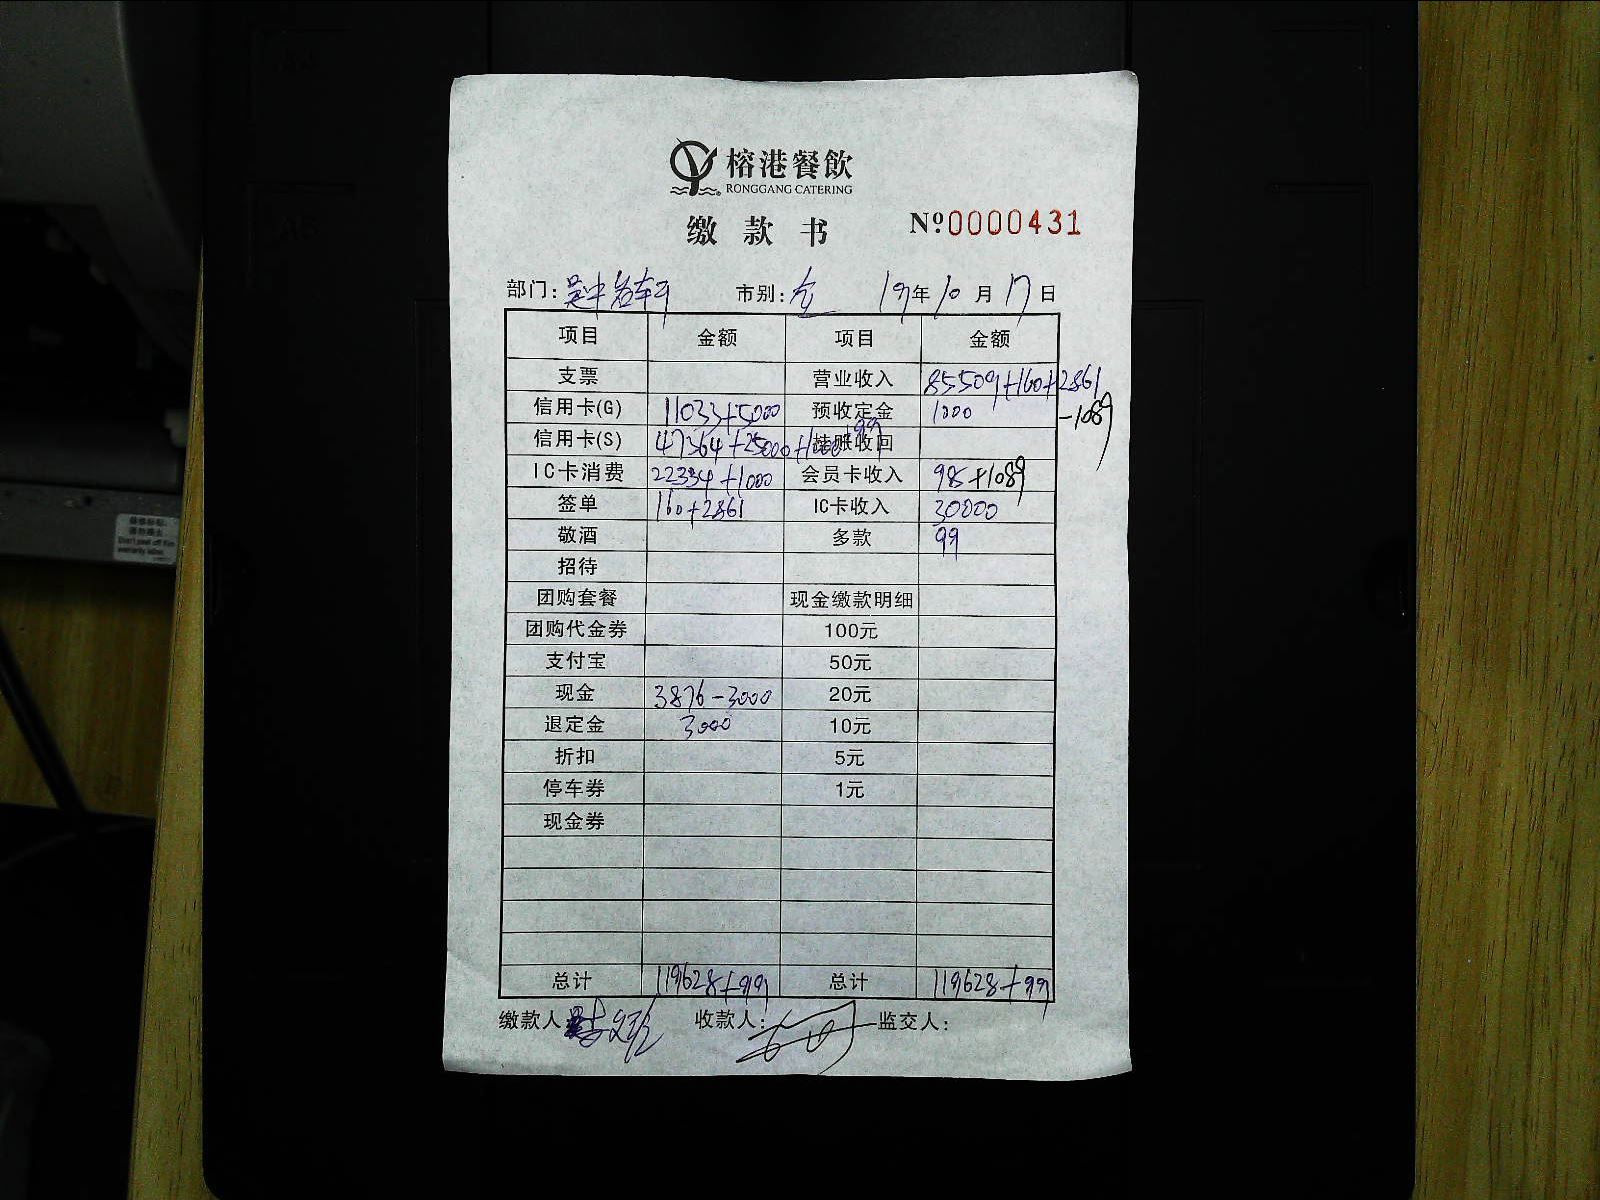 榕港餐飲
RONGGANG CATERING
缴款书 №0000431
部门: 吴中 市别: 全 19年10月17日
项目 金额 项目 金额
支票 营业收入 85509+160+2861
信用卡(G) 11033+5000 预收定金 1000 -1089
信用卡(S) 47364+25000+1000+99 挂账收回
IC卡消费 22334+1000 会员卡收入 98+1089
签单 160+2861 IC卡收入 30000
敬酒 多款 99
招待
团购套餐 现金缴款明细
团购代金券 100元
支付宝 50元
现金 3876-3000 20元
退定金 3000 10元
折扣 5元
停车券 1元
现金券
总计 119628+99 总计 119628+99
缴款人: 收款人: 监交人: